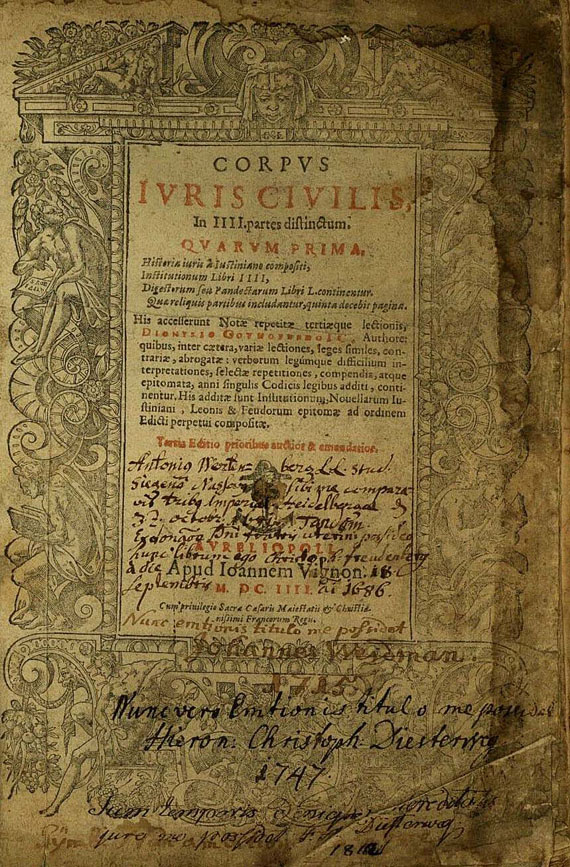 CORPVS
IVRIS CIVILIS,
In IIII. partes distinctum.
QVARVM PRIMA.
Historia iuris à Iustiniano compositi,
Institutionum Libri IIII,
Digestorum seu Pandectarum Libri L. continentur.
Qua reliquis partibus includantur, quinta docebit pagina.
His accesserunt Notæ repetitæ tertiæque lectionis,
DIONYSIO GOTHOFREDO I.C. Authore:
quibus, inter cætera, variæ lectiones, leges similes, con-
trariæ, abrogatæ: verborum legúmque difficilium in-
terpretationes, selectæ repetitiones, compendia, atque
epitomata, anni singulis Codicis legibus additi, conti-
nentur. His additæ sunt Institutionum, Nouellarum Iu-
stiniani, Leonis & Feudorum epitomæ ad ordinem
Edicti perpetui compositæ.
Tertia Editio prioribus auctior & emendatior.
Antonig
Stud.
sibi me compara
Heidelbergæ
hunc librum ego Christoph. freudenberg
AVRELIOPOLI,
à die
Apud Ioannem Vignon. 18
Septembris
M. DC. IIII.
1686.
Cum priuilegio Sacræ Cæsaris Maiestatis & Christia-
nissimi Francorum Regis.
Nunc emtionis titulo me possidet
Johannes Weidman
1715.
Nunc vero Emtionis titulo me possidet
Hieron. Christoph. Diesterweg
1747
jure me possidet Diesterweg